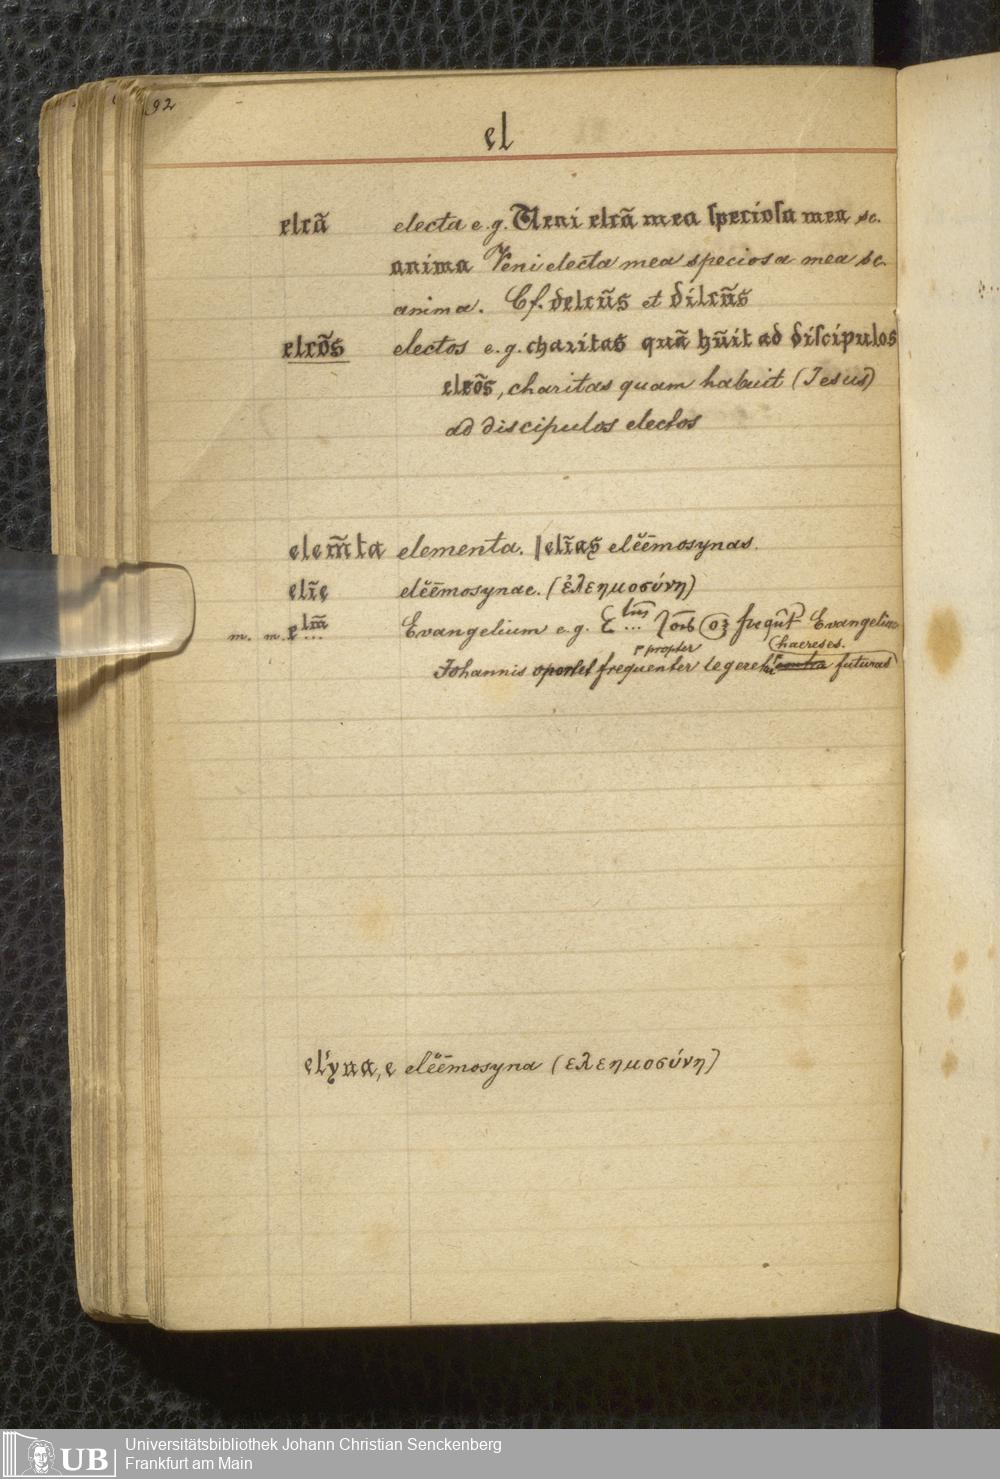 92
el
elcã electa e.g. Veni elcã mea speciosa mea sc.
anima Veni electa mea speciosa mea sc.
anima. Cf. delcũs et dilcũs
elcõs electos e.g. charitas quã hũit ad discipulos
elcõs, charitas quam habuit (Jesus)
ad discipulos electos
elem̃ta elementa. | elĩas elĕēmosynas.
elĩe elĕēmosynae. (ἐλεημοσύνη)
m. m. e... Evangelium e.g. Evangelium
propter haereses.
Johannis oportet frequenter legere contra futuras
el'yna, e elĕēmosyna (ελεημοσύνη)
UB
Universitätsbibliothek Johann Christian Senckenberg
Frankfurt am Main